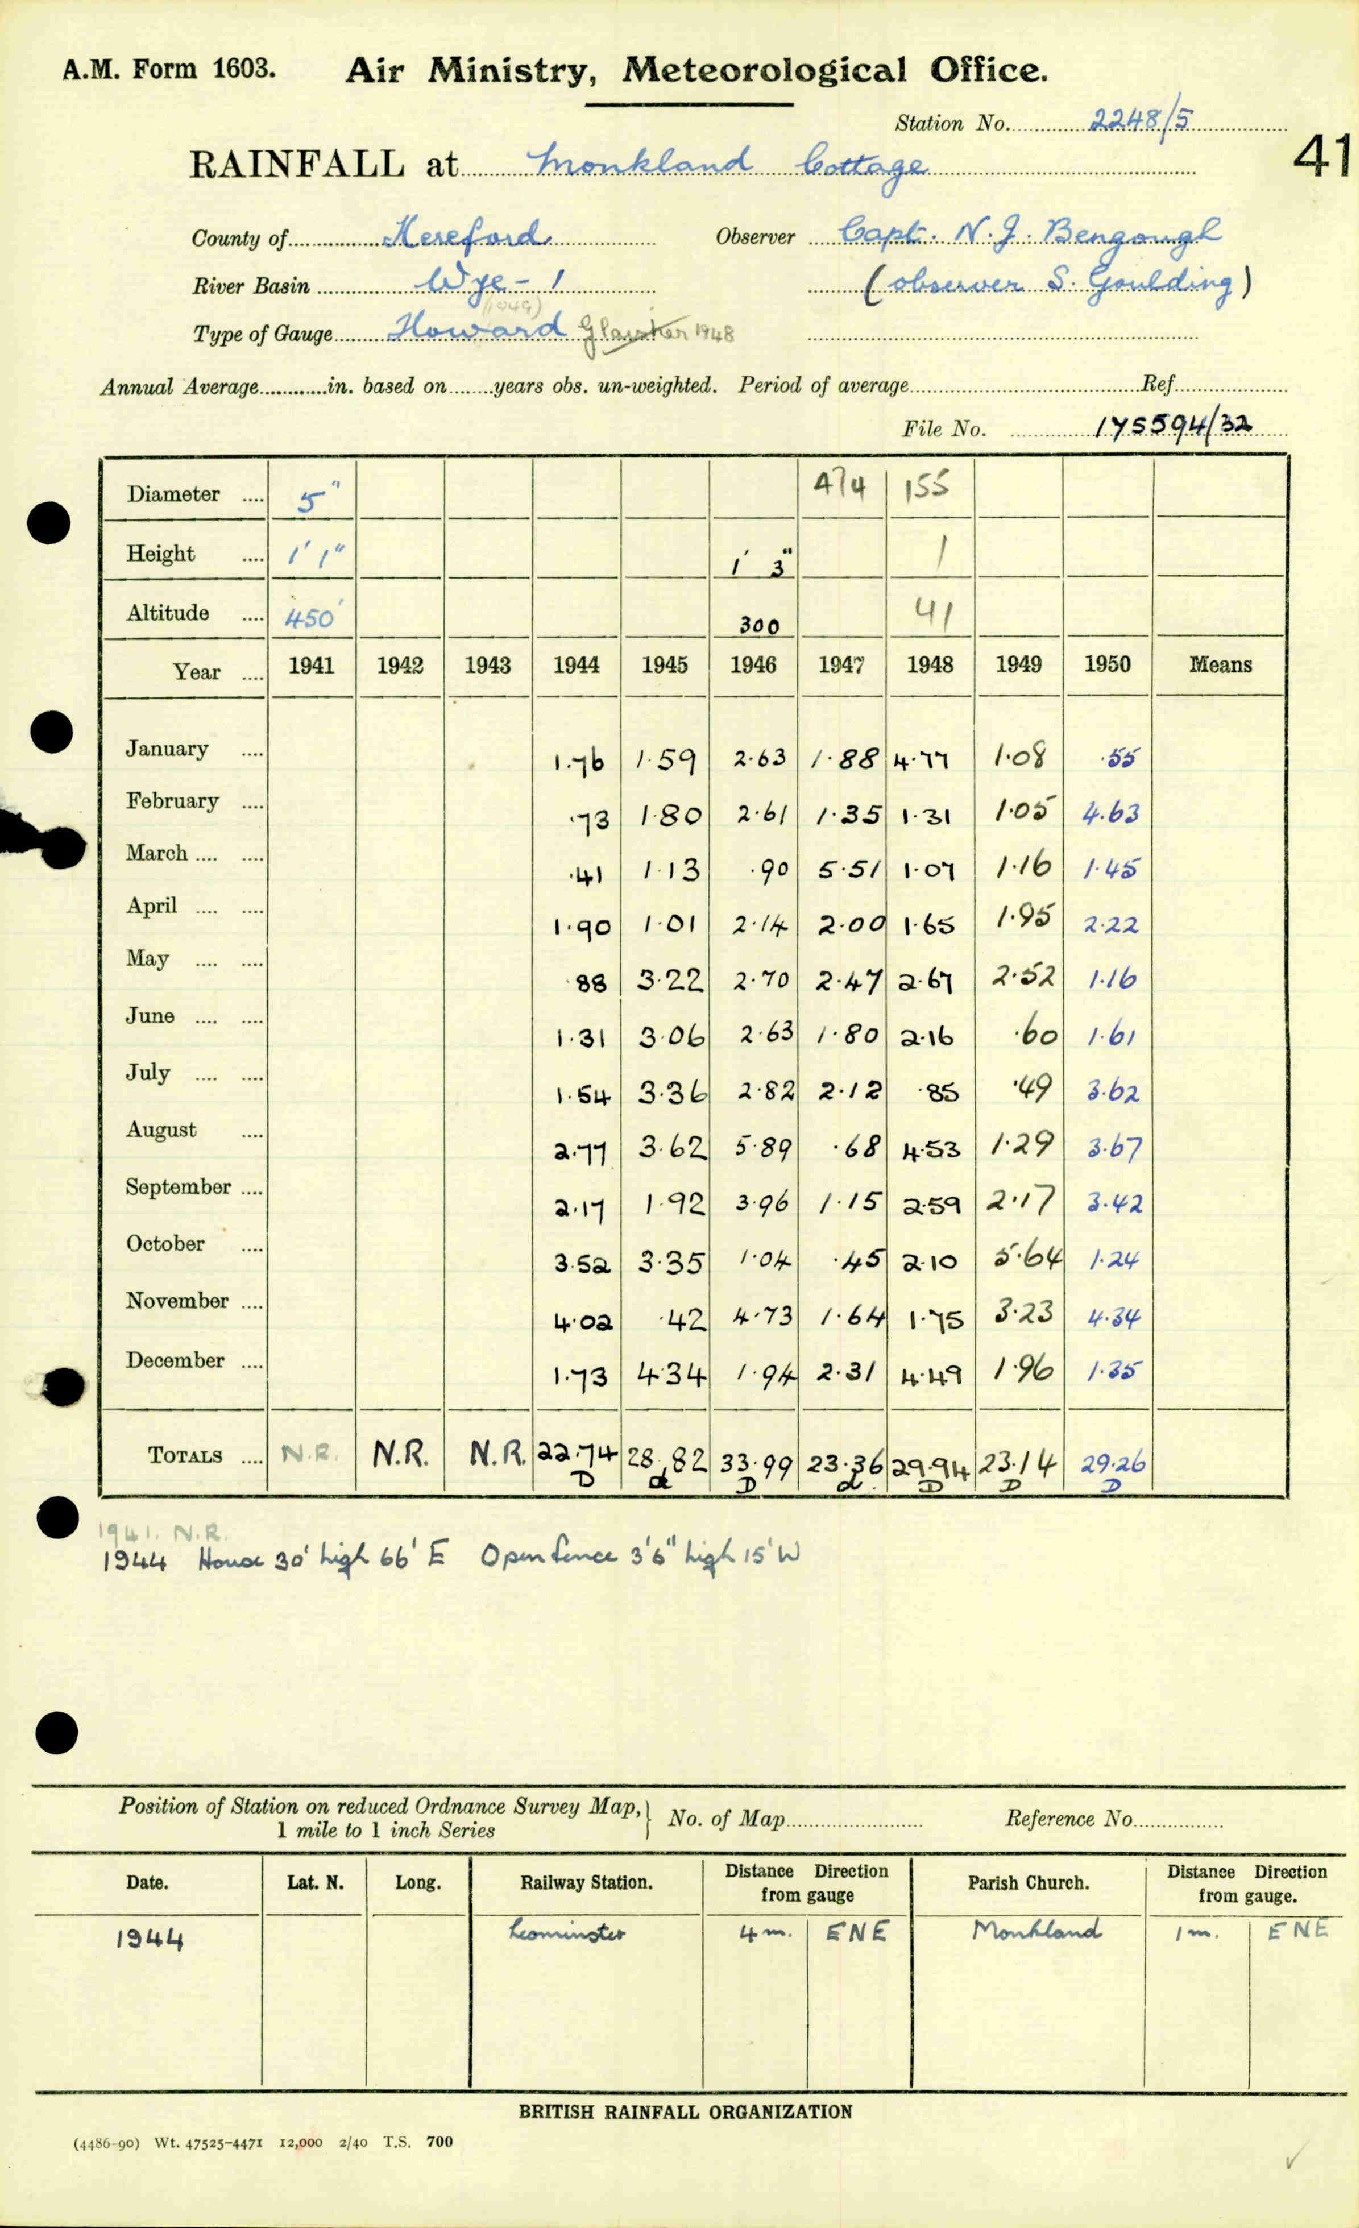 A.M. Form 1603. Air Ministry, Meteorological Office.
Station No. 2248/5
41
RAINFALL at Monkland Cottage
County of Hereford Observer Capt. N. J. Bengough
River Basin Wye - 1 (observer S. Goulding)
(1949)
Type of Gauge Howard Glaisher 1948
Annual Average in. based on years obs. un-weighted. Period of average Ref
File No. 1Y5594/32
Diameter 5" 474 155
Height 1' 1" 1' 3" 1
Altitude 450' 300 41
Year 1941 1942 1943 1944 1945 1946 1947 1948 1949 1950 Means
January 1.76 1.59 2.63 1.88 4.77 1.08 .55
February .73 1.80 2.61 1.35 1.31 1.05 4.63
March .41 1.13 .90 5.51 1.07 1.16 1.45
April 1.90 1.01 2.14 2.00 1.65 1.95 2.22
May .88 3.22 2.70 2.47 2.67 2.52 1.16
June 1.31 3.06 2.63 1.80 2.16 .60 1.61
July 1.54 3.36 2.82 2.12 .85 .49 3.62
August 2.77 3.62 5.89 .68 4.53 1.29 3.67
September 2.17 1.92 3.96 1.15 2.59 2.17 3.42
October 3.52 3.35 1.04 .45 2.10 5.64 1.24
November 4.02 .42 4.73 1.64 1.75 3.23 4.34
December 1.73 4.34 1.94 2.31 4.49 1.96 1.35
TOTALS N.R. N.R. N.R. 22.74 28.82 33.99 23.36 29.94 23.14 29.26
D d D d D D D
1941. N.R.
1944 House 30' high 66' E Open fence 3'6" high 15' W
Position of Station on reduced Ordnance Survey Map, 1 mile to 1 inch Series } No. of Map Reference No.
Date. Lat. N. Long. Railway Station. Distance Direction from gauge Parish Church. Distance Direction from gauge.
1944 Leominster 4 m. ENE Monkland 1 m. ENE
BRITISH RAINFALL ORGANIZATION
(4486-90) Wt. 47525-4471 12,000 2/40 T.S. 700